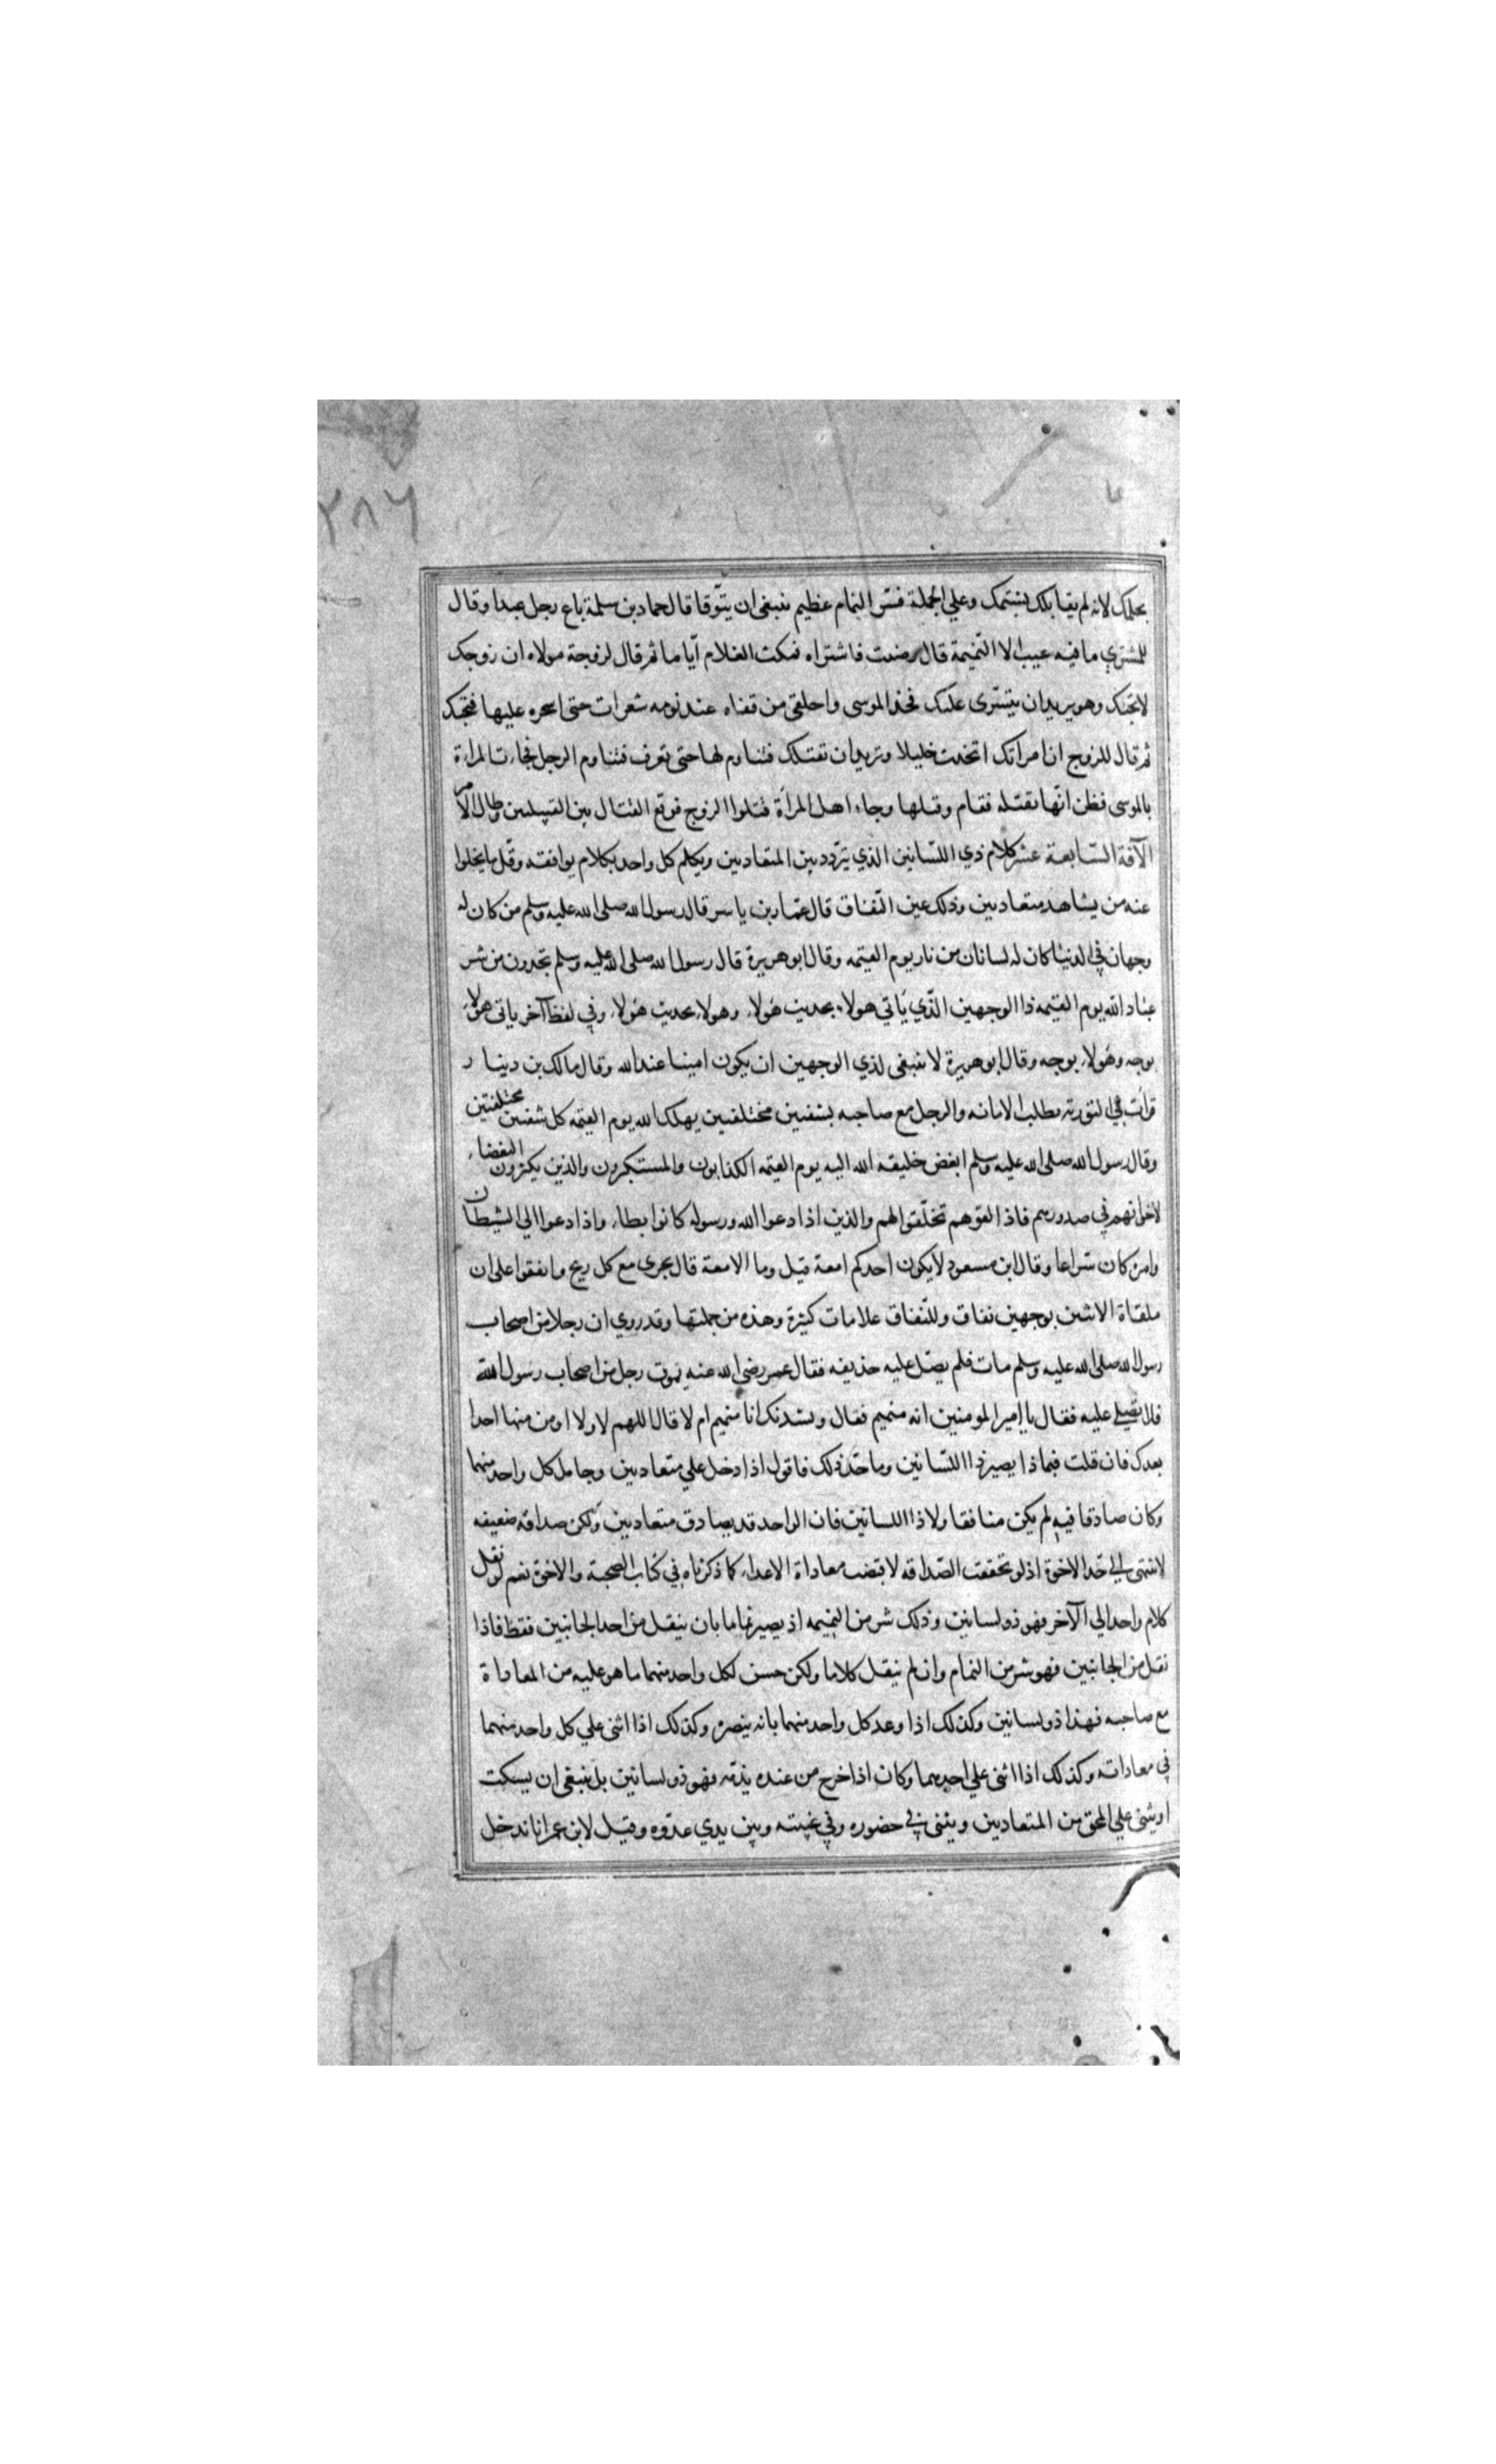 ٢٨٦
بحلمك لانه لم يقابلك بشتمك وعلى الجملة فشر النمام عظيم ينبغى ان يتوقا قال حماد بن سلمة باع رجل عبدا وقال
للمشتري ما فيه عيب الا النميمة قال رضيت فاشتراه فمكث الغلام اياما ثم قال لزوجة مولاه ان زوجك
لا يحبك وهو يريد ان يتسرى عليك فخذ الموسى واحلقى من قفاه عند نومه شعرات حتى اسحره عليها فيحبك
ثم قال للزوج ان امراتك اتخذت خليلا وتريد ان تقتلك فتناوم لها حتى تعرف فتناوم الرجل فجاءت المراءة
بالموسى فظن انها تقتله فقام وقتلها وجاء اهل المرأة فقتلوا الزوج فوقع القتال بين القبيلتين وطال الامر
الآفة السابعة عشر كلام ذي اللسانين الذي يتردد بين المتعاديين ويكلم كل واحد بكلام يوافقه وقل ما يخلوا
عنه من يشاهد متعاديين وذلك عين النفاق قال عمار بن ياسر قال رسول الله صلى الله عليه وسلم من كان له
وجهان في الدنيا كان له لسانان من نار يوم القيمه وقال ابو هريرة قال رسول الله صلى الله عليه وسلم تجدون من شر
عباد الله يوم القيمه ذا الوجهين الذي يأتي هولاء بحديث هولاء وهولاء بحديث هولاء وفي لفظ آخر ياتى هولاء
بوجه وهولاء بوجه وقال ابو هريرة لا ينبغى لذي الوجهين ان يكون امينا عند الله وقال مالك بن دينار
قرأت في التورته بطلب الامانه والرجل مع صاحبه بشفتين مختلفتين يهلك الله يوم القيمه كل شفتين مختلفتين
وقال رسول الله صلى الله عليه وسلم ابغض خليقه الله اليه يوم القيمه الكذابون والمستكبرون والذين يكثرون البغضاء
لاخوانهم في صدورهم فاذا لقوهم تخلقوا لهم والذين اذا دعوا الله ورسوله كانوا بطاء واذا دعوا الي الشيطان
وامره كان سراعا وقال ابن مسعود لا يكون احدكم امعة قيل وما الامعة قال يجرى مع كل ريح واتفقوا على ان
ملقاة الاثنين بوجهين نفاق وللنفاق علامات كثيرة وهذه من جملتها وقد روي ان رجلا من اصحاب
رسول الله صلى الله عليه وسلم مات فلم يصل عليه حذيفه فقال عمر رضى الله عنه يموت رجل من اصحاب رسول الله
فلا يصلى عليه فقال يا امير المومنين انه منهيم فقال ونشدتك انا منهم ام لا قال اللهم لا ولا اومن منها احدا
بعدك فان قلت فبماذا يصير ذا اللسانين وما حد ذلك فاقول اذا دخل علي متعاديين وجامل كل واحد منهما
وكان صادقا فيه لم يكن منافقا ولا ذا اللسانين فان الواحد قد يصادق متعاديين ولكن صداقه ضعيفه
لا تنتهي الي حد الاخوة اذ لو تحققت الصداقه لاقتضت معاداة الاعداء كما ذكرناه في كتاب الصحبة والاخوة نعم لو نقل
كلام واحد الي الآخر فهو ذو لسانين وذلك شر من النميمه اذ يصير نماما بان ينقل من احد الجانبين فقط فاذا
نقل من الجانبين فهو شر من النمام وان لم ينقل كلاما ولكن حسن لكل واحد منهما ما هو عليه من المعاداة
مع صاحبه فهذا ذو لسانين وكذلك اذا وعد كل واحد منهما بانه ينصره وكذلك اذا اثنى علي كل واحد منهما
في معاداته وكذلك اذا اثنى علي احدهما وكان اذا خرج من عنده يذمه فهو ذو لسانين بل ينبغى ان يسكت
او يثنى علي المحق من المتعاديين ويثنى في حضوره وفي غيبته وبين يدي عدوه وقيل لابن عمر انا ندخل